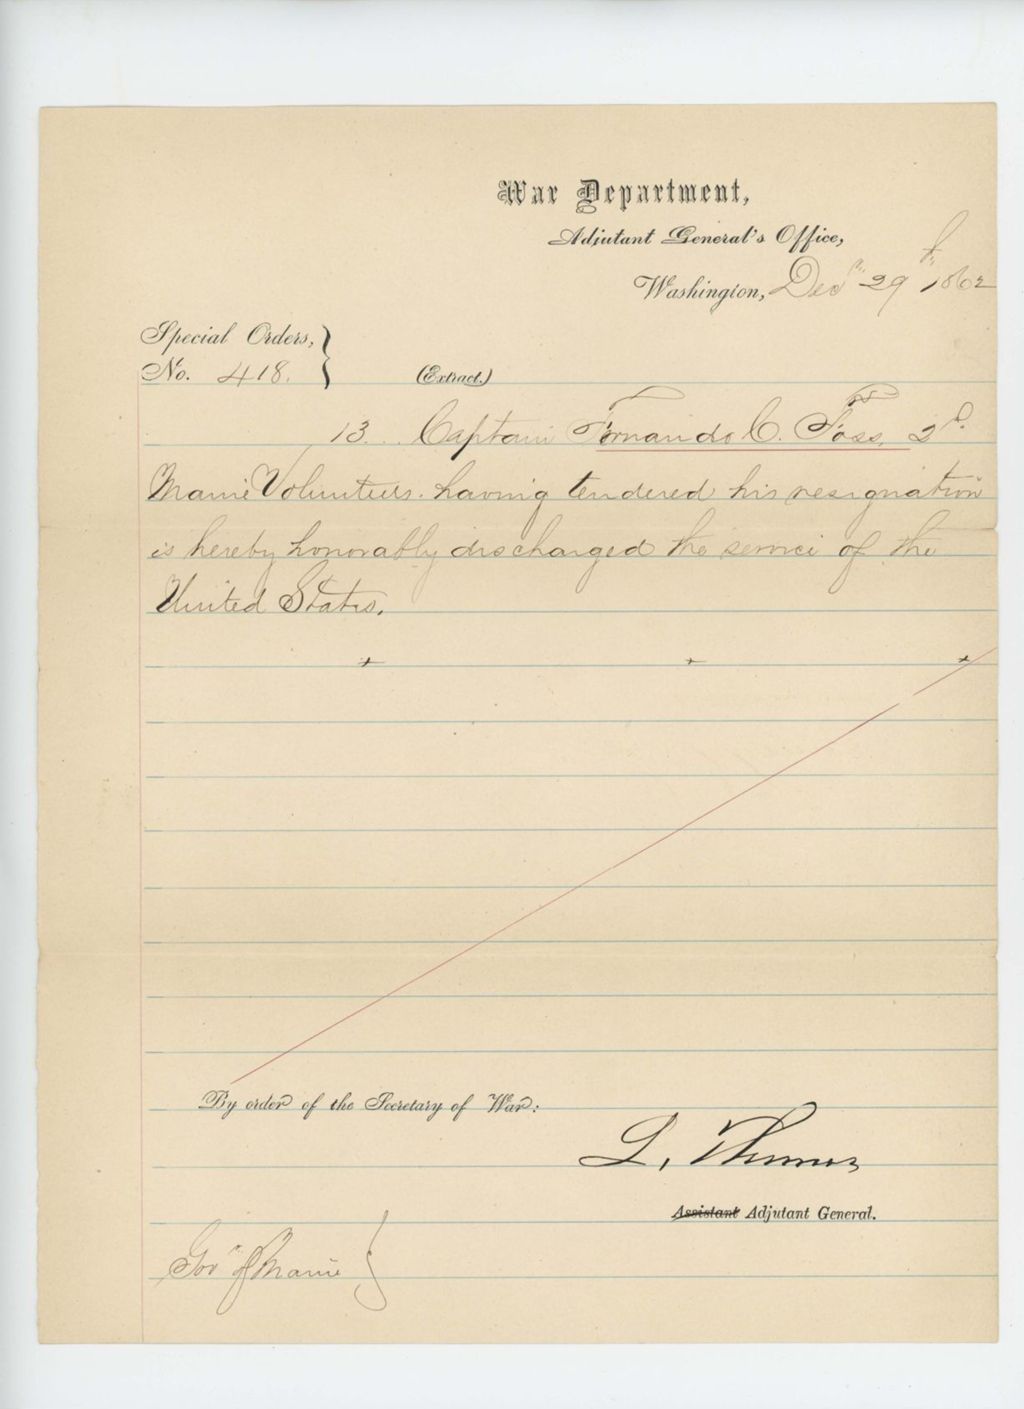 War Department,
Adjutant General's Office,
Washington, Decr 29th, 1862
Special Orders,
No. 418.
(Extract.)
13... Captain Fernando C. Foss, 2d.
Maine Volunteers. having tendered his resignation
is hereby honorably discharged the service of the
United States.
+ + +
By order of the Secretary of War:
L. Thomas
Assistant Adjutant General.
Govr of Maine